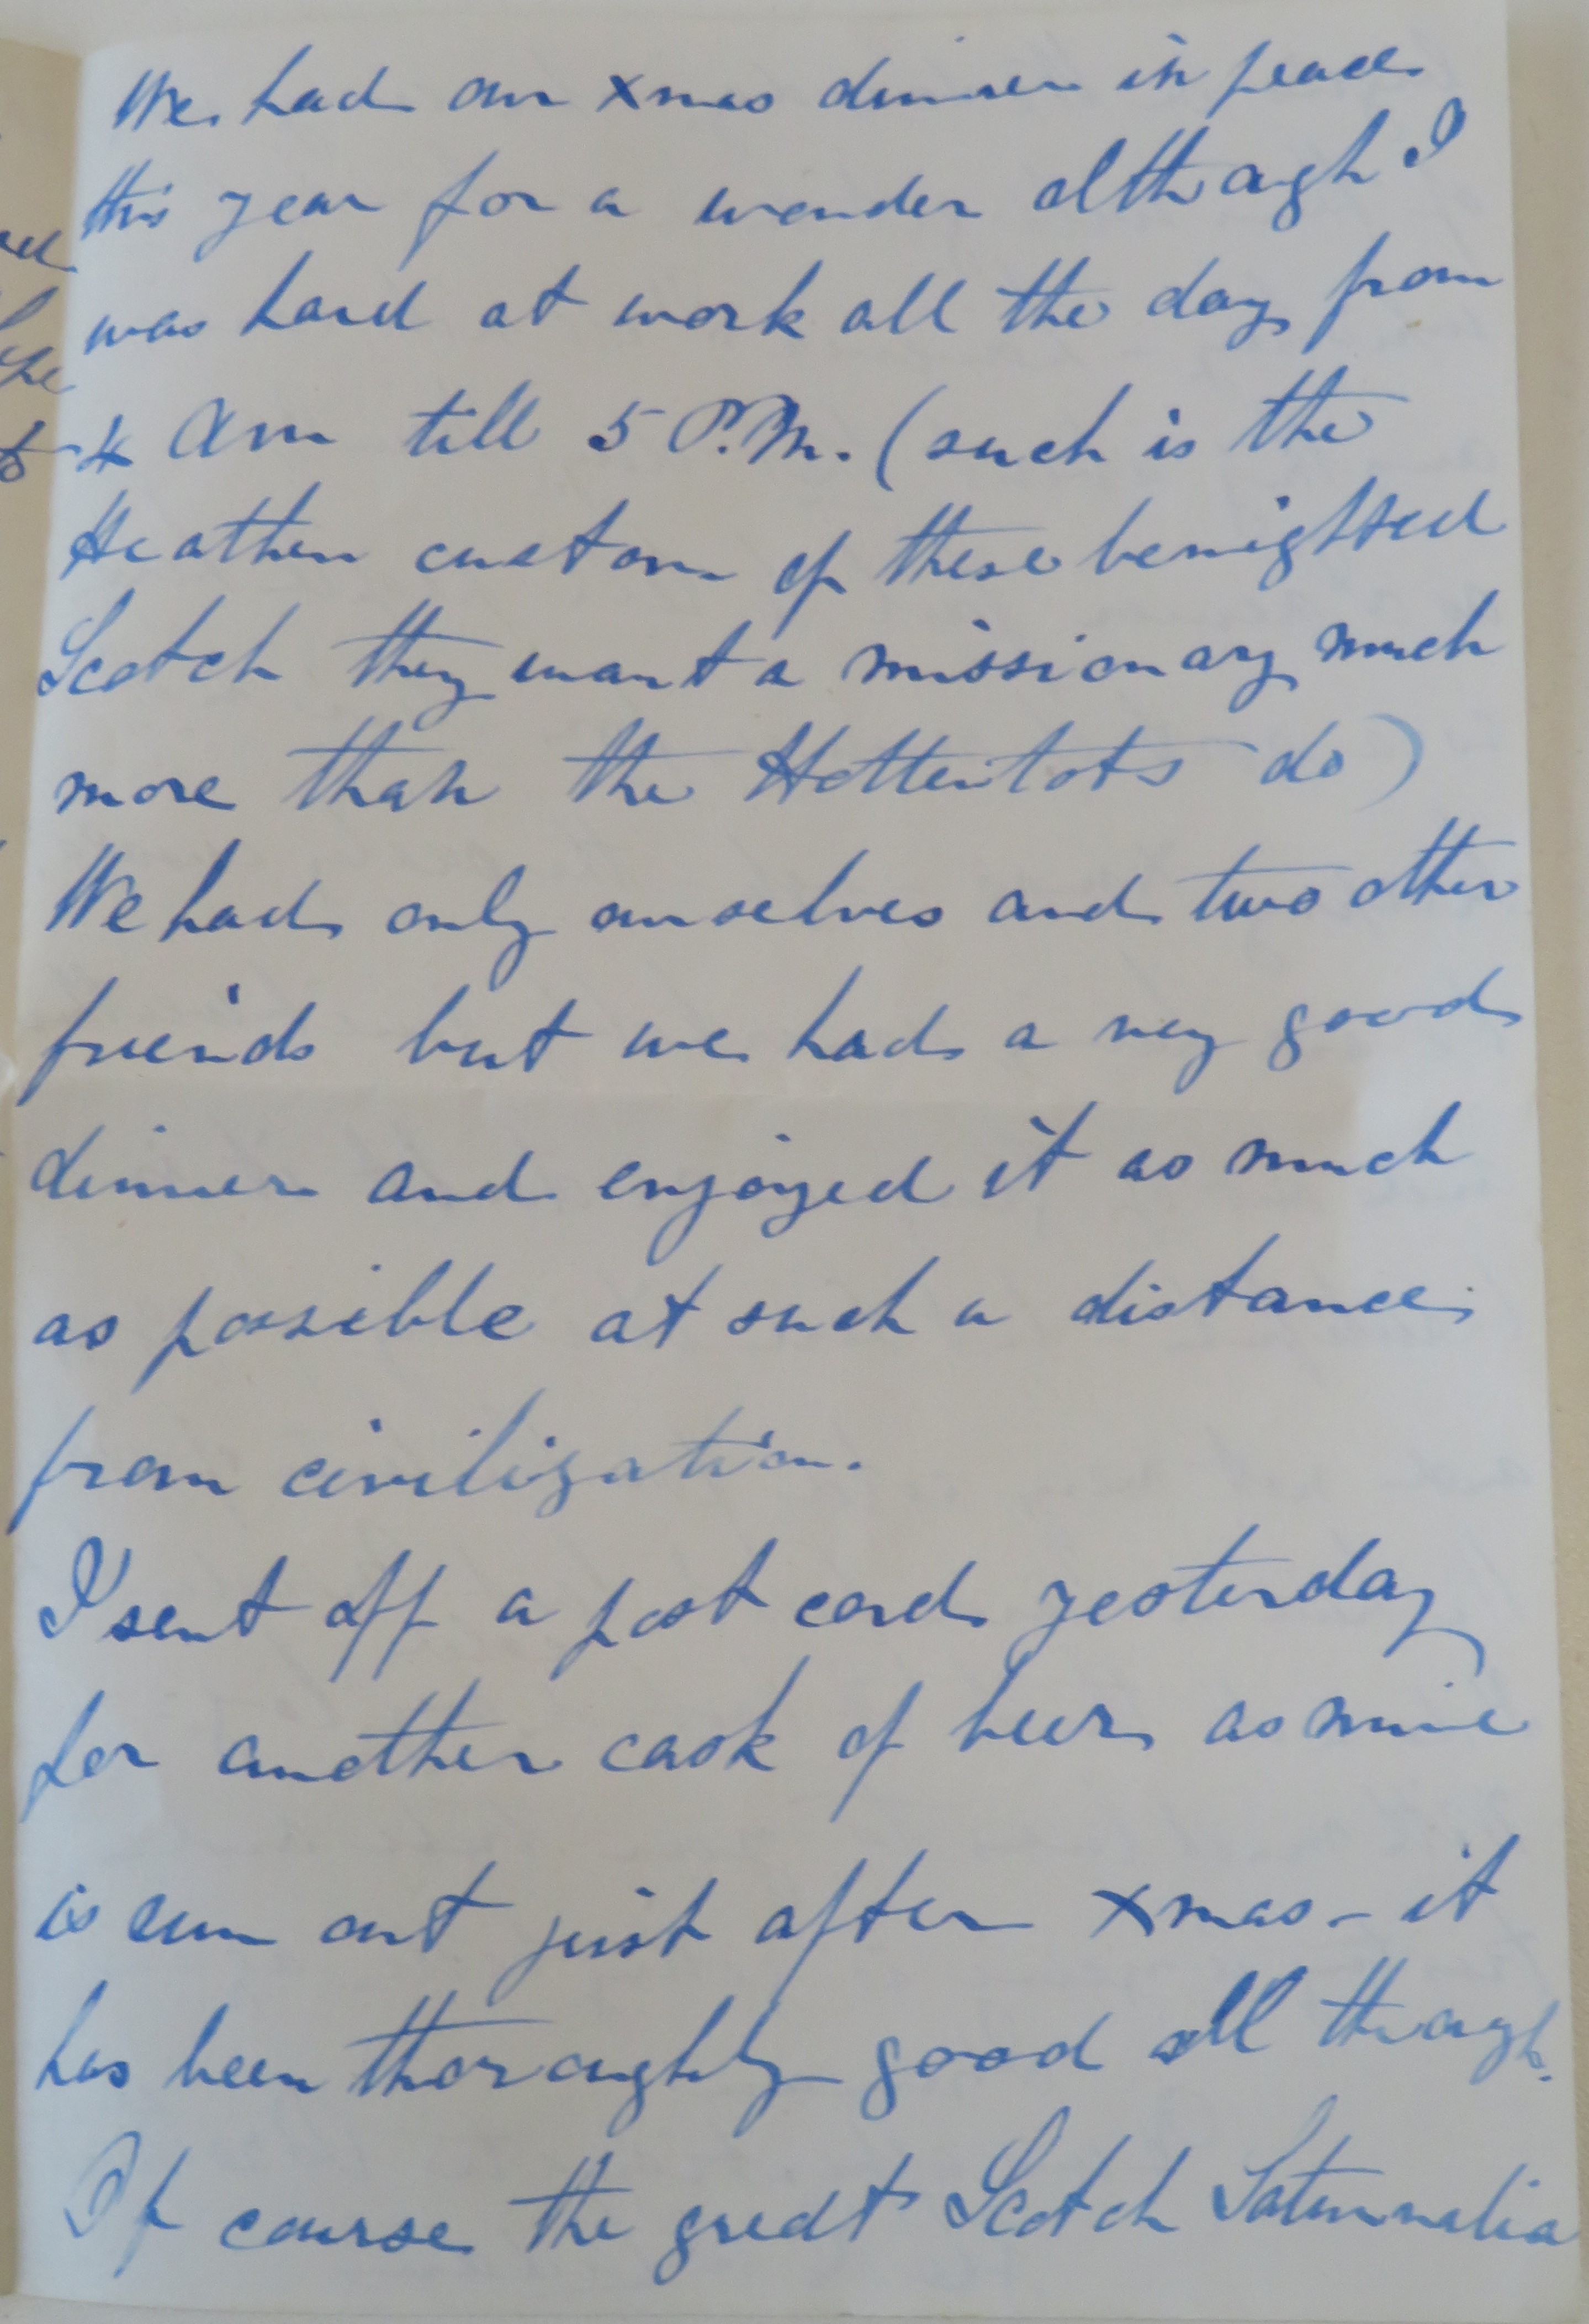 We had our Xmas dinner in peace
this year for a wonder although I
was hard at work all the day from
4 Am till 5 P.M. (such is the
Heathen custom of these benighted
Scotch they want a missionary much
more than the Hottentots do)
We had only ourselves and two other
friends but we had a very good
dinner and enjoyed it as much
as possible at such a distance
from civilization.
I sent off a post card yesterday
for another cask of beer as mine
is run out just after Xmas - it
has been thoroughly good all through.
Of course the great Scotch Saturnalia